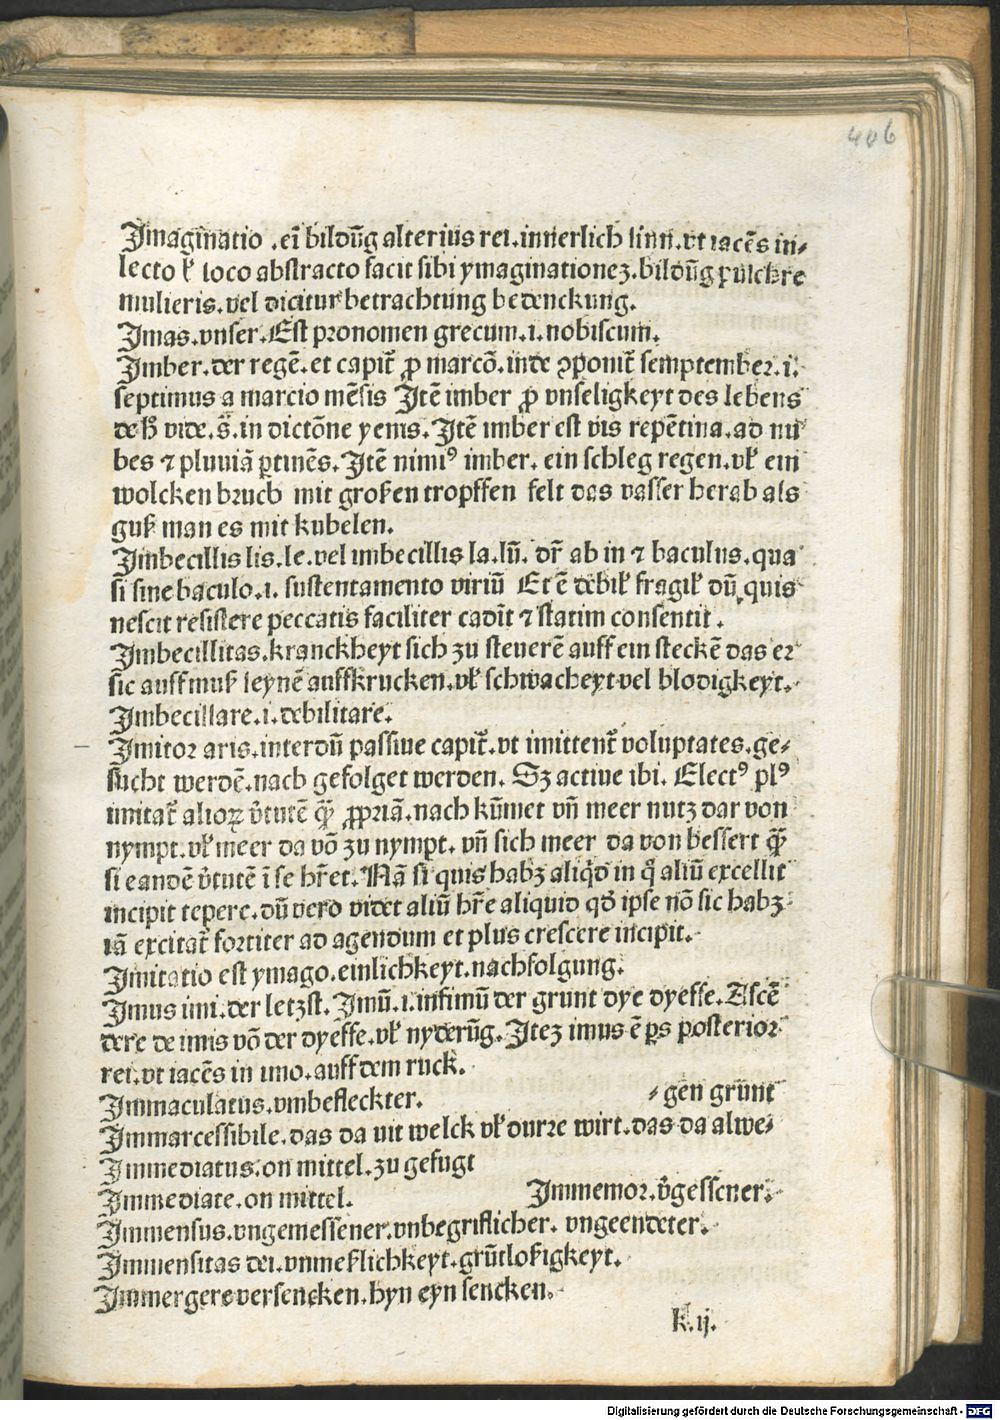 406
Imagīnatio .eī bildūg alterius rei.innerlich sinn.vt iacēs in⸗
lecto vł loco abstracto facit sibi ymaginationeʒ.bildūg pulchre
mulieris.vel dicitur betrachtung bedenckung.
Imas.vnser.Est pronomen grecum.i.nobiscum.
Imber.der regē.et capit̄ ꝓ marcō.inde ꝯponit̄ semptember.i.
septimus a marcio mēsis Itē imber ꝓ vnseligkeyt des lebens
de ꝗ vide.s̄.in dictōne yems.Itē imber est vis repētina.ad nu
bes ⁊ pluuiā ꝑtinēs.Itē nimiꝰ imber. ein schleg regen.vł ein
wolcken bruch mit groſzen tropffen felt das vasser herab als
guſz man es mit kubelen.
Imbecillis lis.le.vel imbecillis la.lū. dr̄ ab in ⁊ baculus.qua
si sine baculo.i. sustentamento viriū Et ē debił fragił dū quis
nescit resistere peccatis faciliter cadit ⁊ statim consentit.
Imbecillitas.kranckheyt sich zu steuerē auff ein steckē das er
sic auff muſz leynē auffkrucken.vł schwacheyt vel blodigkeyt.
Imbecillare.i.debilitare.
Imitor aris.interdū passiue capit̄.vt imittent̄ voluptates.ge⸗
sucht werdē.nach gefolget werden. Sʒ actiue ibi. Electꝰ plꝰ
imitat̄ alioꝝ v̄tutē ꝗ̄ ꝓpriā.nach kūmet vn̄ meer nutz dar von
nympt.vł meer da vō zu nympt. vn̄ sich meer da von bessert ꝗ̄
si eandē v̄tutē ī se hr̄et. Nā si quis habʒ aliqd̄ in q̄ aliū excellit
incipit tepere.dū vero videt aliū hr̄e aliquid qd̄ ipse nō sic habʒ
iā excitat̄ fortiter ad agendum et plus crescere incipit.
Imitatio est ymago.einlichkeyt.nachfolgung.
Imus imi.der letzst. Imū.i.infimū der grunt dye dyeffe. Ascē
dere de imis vō der dyeffe.vł nyderūg.Iteʒ imus ē ꝑs posterior
rei.vt iacēs in imo.auff dem ruck.
Immaculatus.vmbefleckter.
⸗gen grūnt
Immarcessibile.das da nit welck vł durre wirt.das da alwe⸗
Immediatus.on mittel.zu gefugt
Immediate.on mittel. Immemor.v̄gessener.
Immensus.vngemessener.vnbegriflicher. vngeendeter.
Immensitas dei.vnmeſzlichkeyt.grūtloſzigkeyt.
Immergere versencken.hyn eyn sencken.
K.ij.
Digitalisierung gefördert durch die Deutsche Forschungsgemeinschaft - DFG